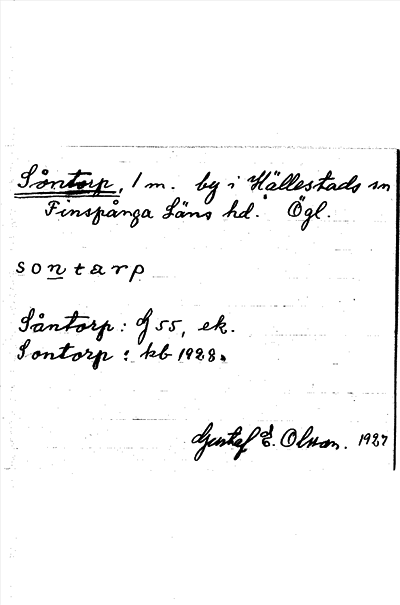 Såntorp, 1 m. by i Hällestads sn
Finspånga Läns hd. Ögl.
sontarp
Såntorp: G 55, ek.
Sontorp: kb 1928.
Gustaf E. Olsson. 1927